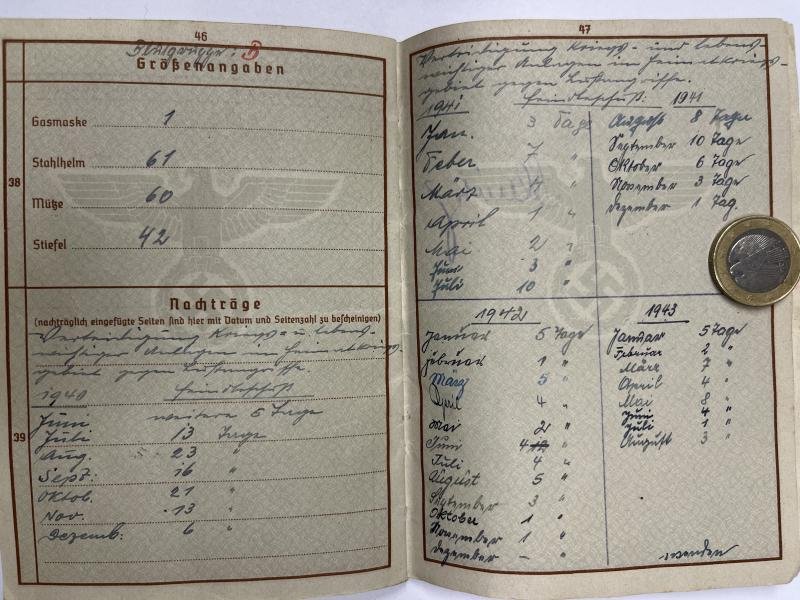 46
Blutgruppe: B
Größenangaben
38
Gasmaske 1
Stahlhelm 61
Mütze 60
Stiefel 42
Nachträge
(nachträglich eingefügte Seiten sind hier mit Datum und Seitenzahl zu bescheinigen)
Verteidigung Kriegs- u. lebens-
wichtiger Anlagen im Heimatkriegs-
gebiet gegen Luftangriffe.
39
1940 Feindbeschuß
Juni weitere 5 Tage
Juli 13 Tage
Aug. 23 "
Sept: 16 "
Oktob. 21 "
Nov. 13 "
Dezemb: 6 "
47
Verteidigung Kriegs- und lebens-
wichtiger Anlagen im Heimatkriegs-
gebiet gegen Luftangriffe.
1941 Feindbeschuß: 1941
Jan. 3 Tage
Feber 7 "
März "
April 1 "
Mai 2 "
Juni 3 "
Juli 10 "
August 8 Tage
September 10 Tage
Oktober 6 Tage
November 3 Tage
Dezember 1 Tag.
1942
Januar 5 Tage
Februar 1 "
März 5 "
April 4 "
Mai 2 "
Juni 4 12 "
Juli 4 "
August 5 "
September 3 "
Oktober 1 "
November 1 "
Dezember – "
1943
Januar 5 Tage
Februar 2 "
März 7 "
April 4 "
Mai 8 "
Juni 4 "
Juli 1 "
August 3 "
wenden